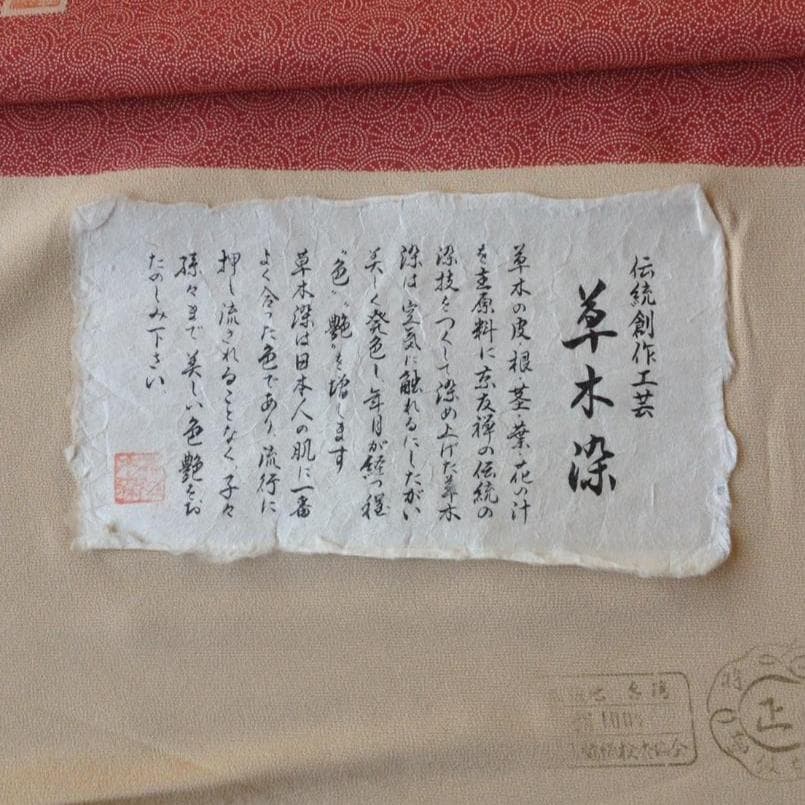 伝統創作工芸
草木染
草木の皮・根・茎・葉・花の汁
を主原料に京友禅の伝統の
染技をつくして染め上げた草木
染は空気に触れるにしたがい
美しく発色し、年月が経つ程
“色”、“艶”を増します
草木染は日本人の肌に一番
よく合った色であり、流行に
押し流されることなく、子々
孫々まで美しい色艶をお
たのしみ下さい
正